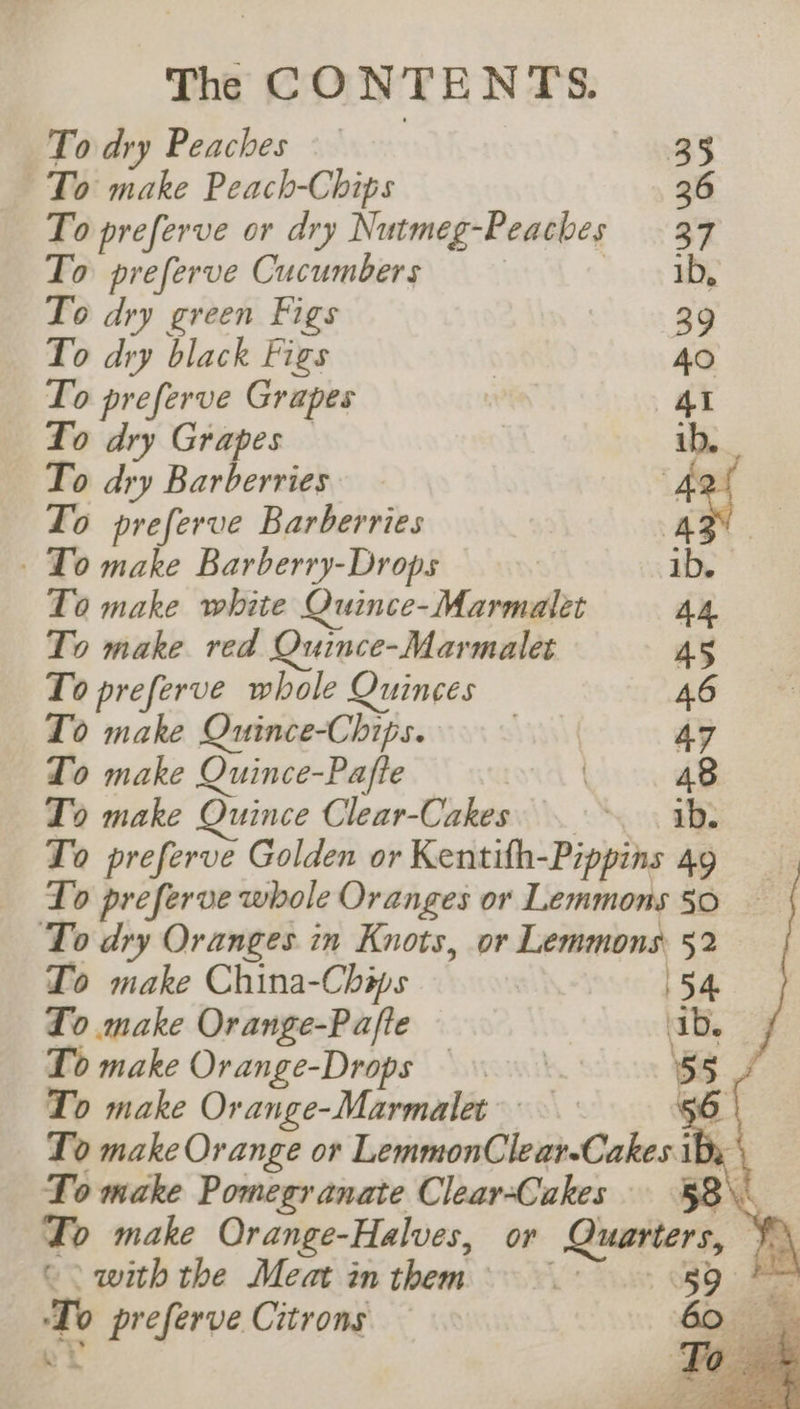 The CONTENTS.
To dry Peaches 35
To make Peach-Chips 36
To preſerve or dry Nutmeg-Peaches 37
To preſerve Cucumbers ib.
To dry green Figs 39
To dry black Figs 40
To preſerve Grapes 41
To dry Grapes ib.
To dry Barberries 42
To preſerve Barberries 43
To make Barberry-Drops ib.
To make white Quince-Marmalet 44
To make red Quince-Marmalet 45
To preſerve whole Quinces 46
To make Quince-Chips. 47
To make Quince-Paſte 48
To make Quince Clear-Cakes ib.
To preſerve Golden or Kentiſh-Pippins 49
To preſerve whole Oranges or Lemmons 50
To dry Oranges in Knots, or Lemmons 52
To make China-Chips 54
To make Orange-Paſte ib.
To make Orange-Drops 55
To make Orange-Marmalet 56
To make Orange or Lemmon Clear-Cakes ib.
To make Pomegranate Clear-Cakes 58
To make Orange-Halves, or Quarters,
with the Meat in them 59
To preſerve Citrons 60
To